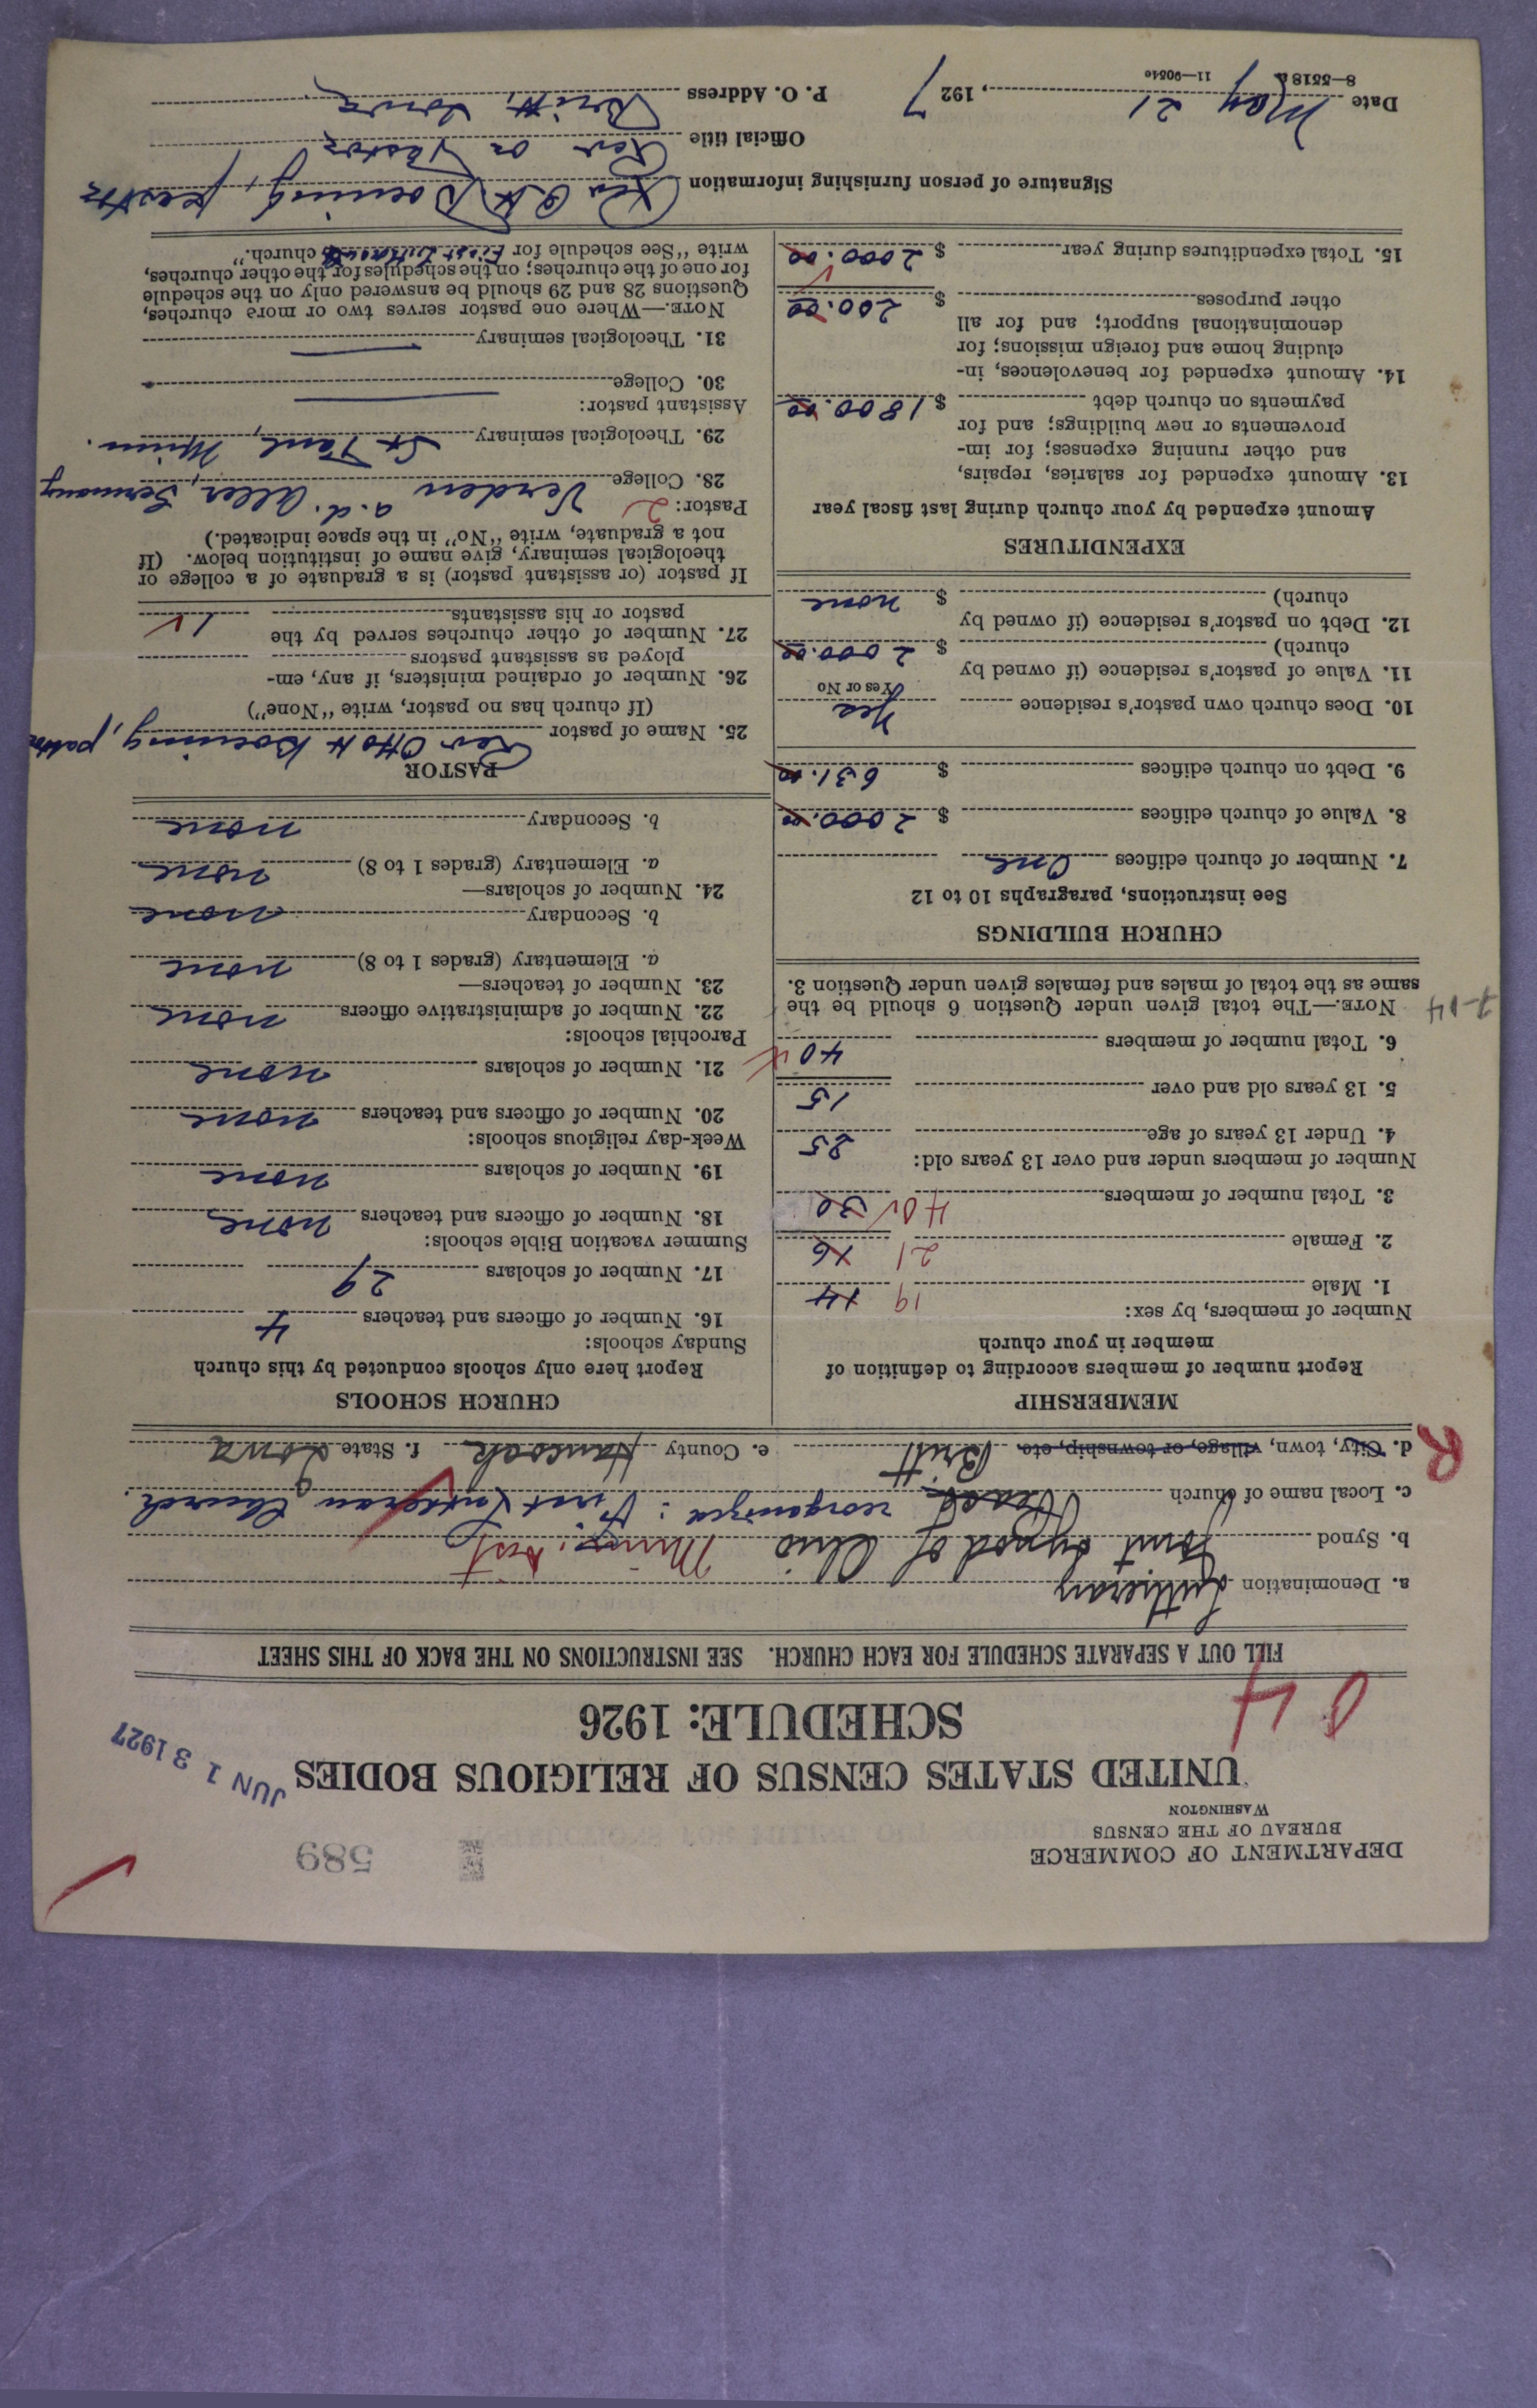 DEPARTMENT OF COMMERCE
BUREAU OF THE CENSUS
WASHINGTON
589
UNITED STATES CENSUS OF RELIGIOUS BODIES
JUN 13 1927
SCHEDULE: 1926
0 4
FILL OUT A SEPARATE SCHEDULE FOR EACH CHURCH. SEE INSTRUCTIONS ON THE BACK OF THIS SHEET
a. Denomination Lutheran
b. Synod Joint Synod of Ohio
c. Local name of church reorganized: First Lutheran Church.
d. City, town, village, or township, etc. Britt e. County Hancock f. State Iowa
R
MEMBERSHIP
Report number of members according to definition of
member in your church
Number of members, by sex:
1. Male 19 14
2. Female 21 16
3. Total number of members 40 30
Number of members under and over 13 years old:
4. Under 13 years of age 25
5. 13 years old and over 15
6. Total number of members 40
NOTE.—The total given under Question 6 should be the
same as the total of males and females given under Question 3.
CHURCH BUILDINGS
See instructions, paragraphs 10 to 12
7. Number of church edifices One
8. Value of church edifices $ 2000.00
9. Debt on church edifices $ 631.00
10. Does church own pastor's residence Yes
Yes or No
11. Value of pastor's residence (if owned by
church) $ 2000.00
12. Debt on pastor's residence (if owned by
church) $ none
EXPENDITURES
Amount expended by your church during last fiscal year
13. Amount expended for salaries, repairs,
and other running expenses; for im-
provements or new buildings; and for
payments on church debt $ 1800.00
14. Amount expended for benevolences, in-
cluding home and foreign missions; for
denominational support; and for all
other purposes $ 200.00
15. Total expenditures during year $ 2000.00
CHURCH SCHOOLS
Report here only schools conducted by this church
Sunday schools:
16. Number of officers and teachers 4
17. Number of scholars 29
Summer vacation Bible schools:
18. Number of officers and teachers none
19. Number of scholars none
Week-day religious schools:
20. Number of officers and teachers none
21. Number of scholars none
Parochial schools:
22. Number of administrative officers none
23. Number of teachers—
a. Elementary (grades 1 to 8) none
b. Secondary none
24. Number of scholars—
a. Elementary (grades 1 to 8) none
b. Secondary none
PASTOR
25. Name of pastor Rev Otto H Boening, pastor
(If church has no pastor, write "None")
26. Number of ordained ministers, if any, em-
ployed as assistant pastors
27. Number of other churches served by the
pastor or his assistants 1
If pastor (or assistant pastor) is a graduate of a college or
theological seminary, give name of institution below. (If
not a graduate, write "No" in the space indicated.)
Pastor: 2
28. College Verden a.d. Aller, Germany
29. Theological seminary St Paul, Minn.
Assistant pastor:
30. College
31. Theological seminary
NOTE.—Where one pastor serves two or more churches,
Questions 28 and 29 should be answered only on the schedule
for one of the churches; on the schedules for the other churches,
write "See schedule for First Lutheran church."
Signature of person furnishing information Rev O.H. Boening, pastor
Official title Rev or Pastor
Date May 21, 1927 P. O. Address Britt, Iowa.
8—5518a 11—9054e